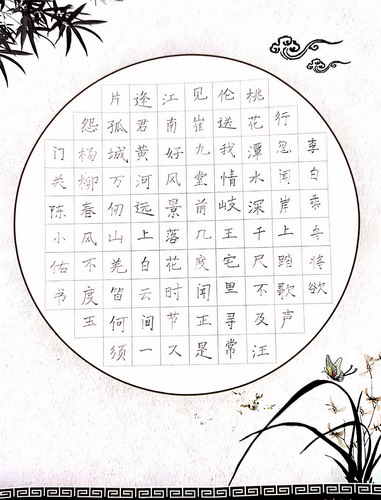 李白乘舟将欲
行忽闻岸上踏歌声
桃花潭水深千尺不及汪
伦送我情岐王宅里寻常
见崔九堂前几度闻正是
江南好风景落花时节又
逢君黄河远上白云间一
片孤城万仞山羌笛何须
怨杨柳春风不度玉
门关陈小佑书